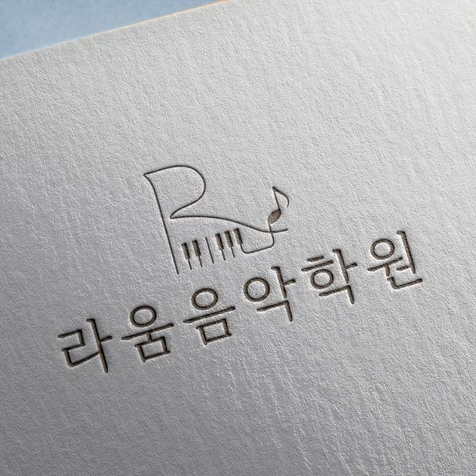 R
라움음악학원